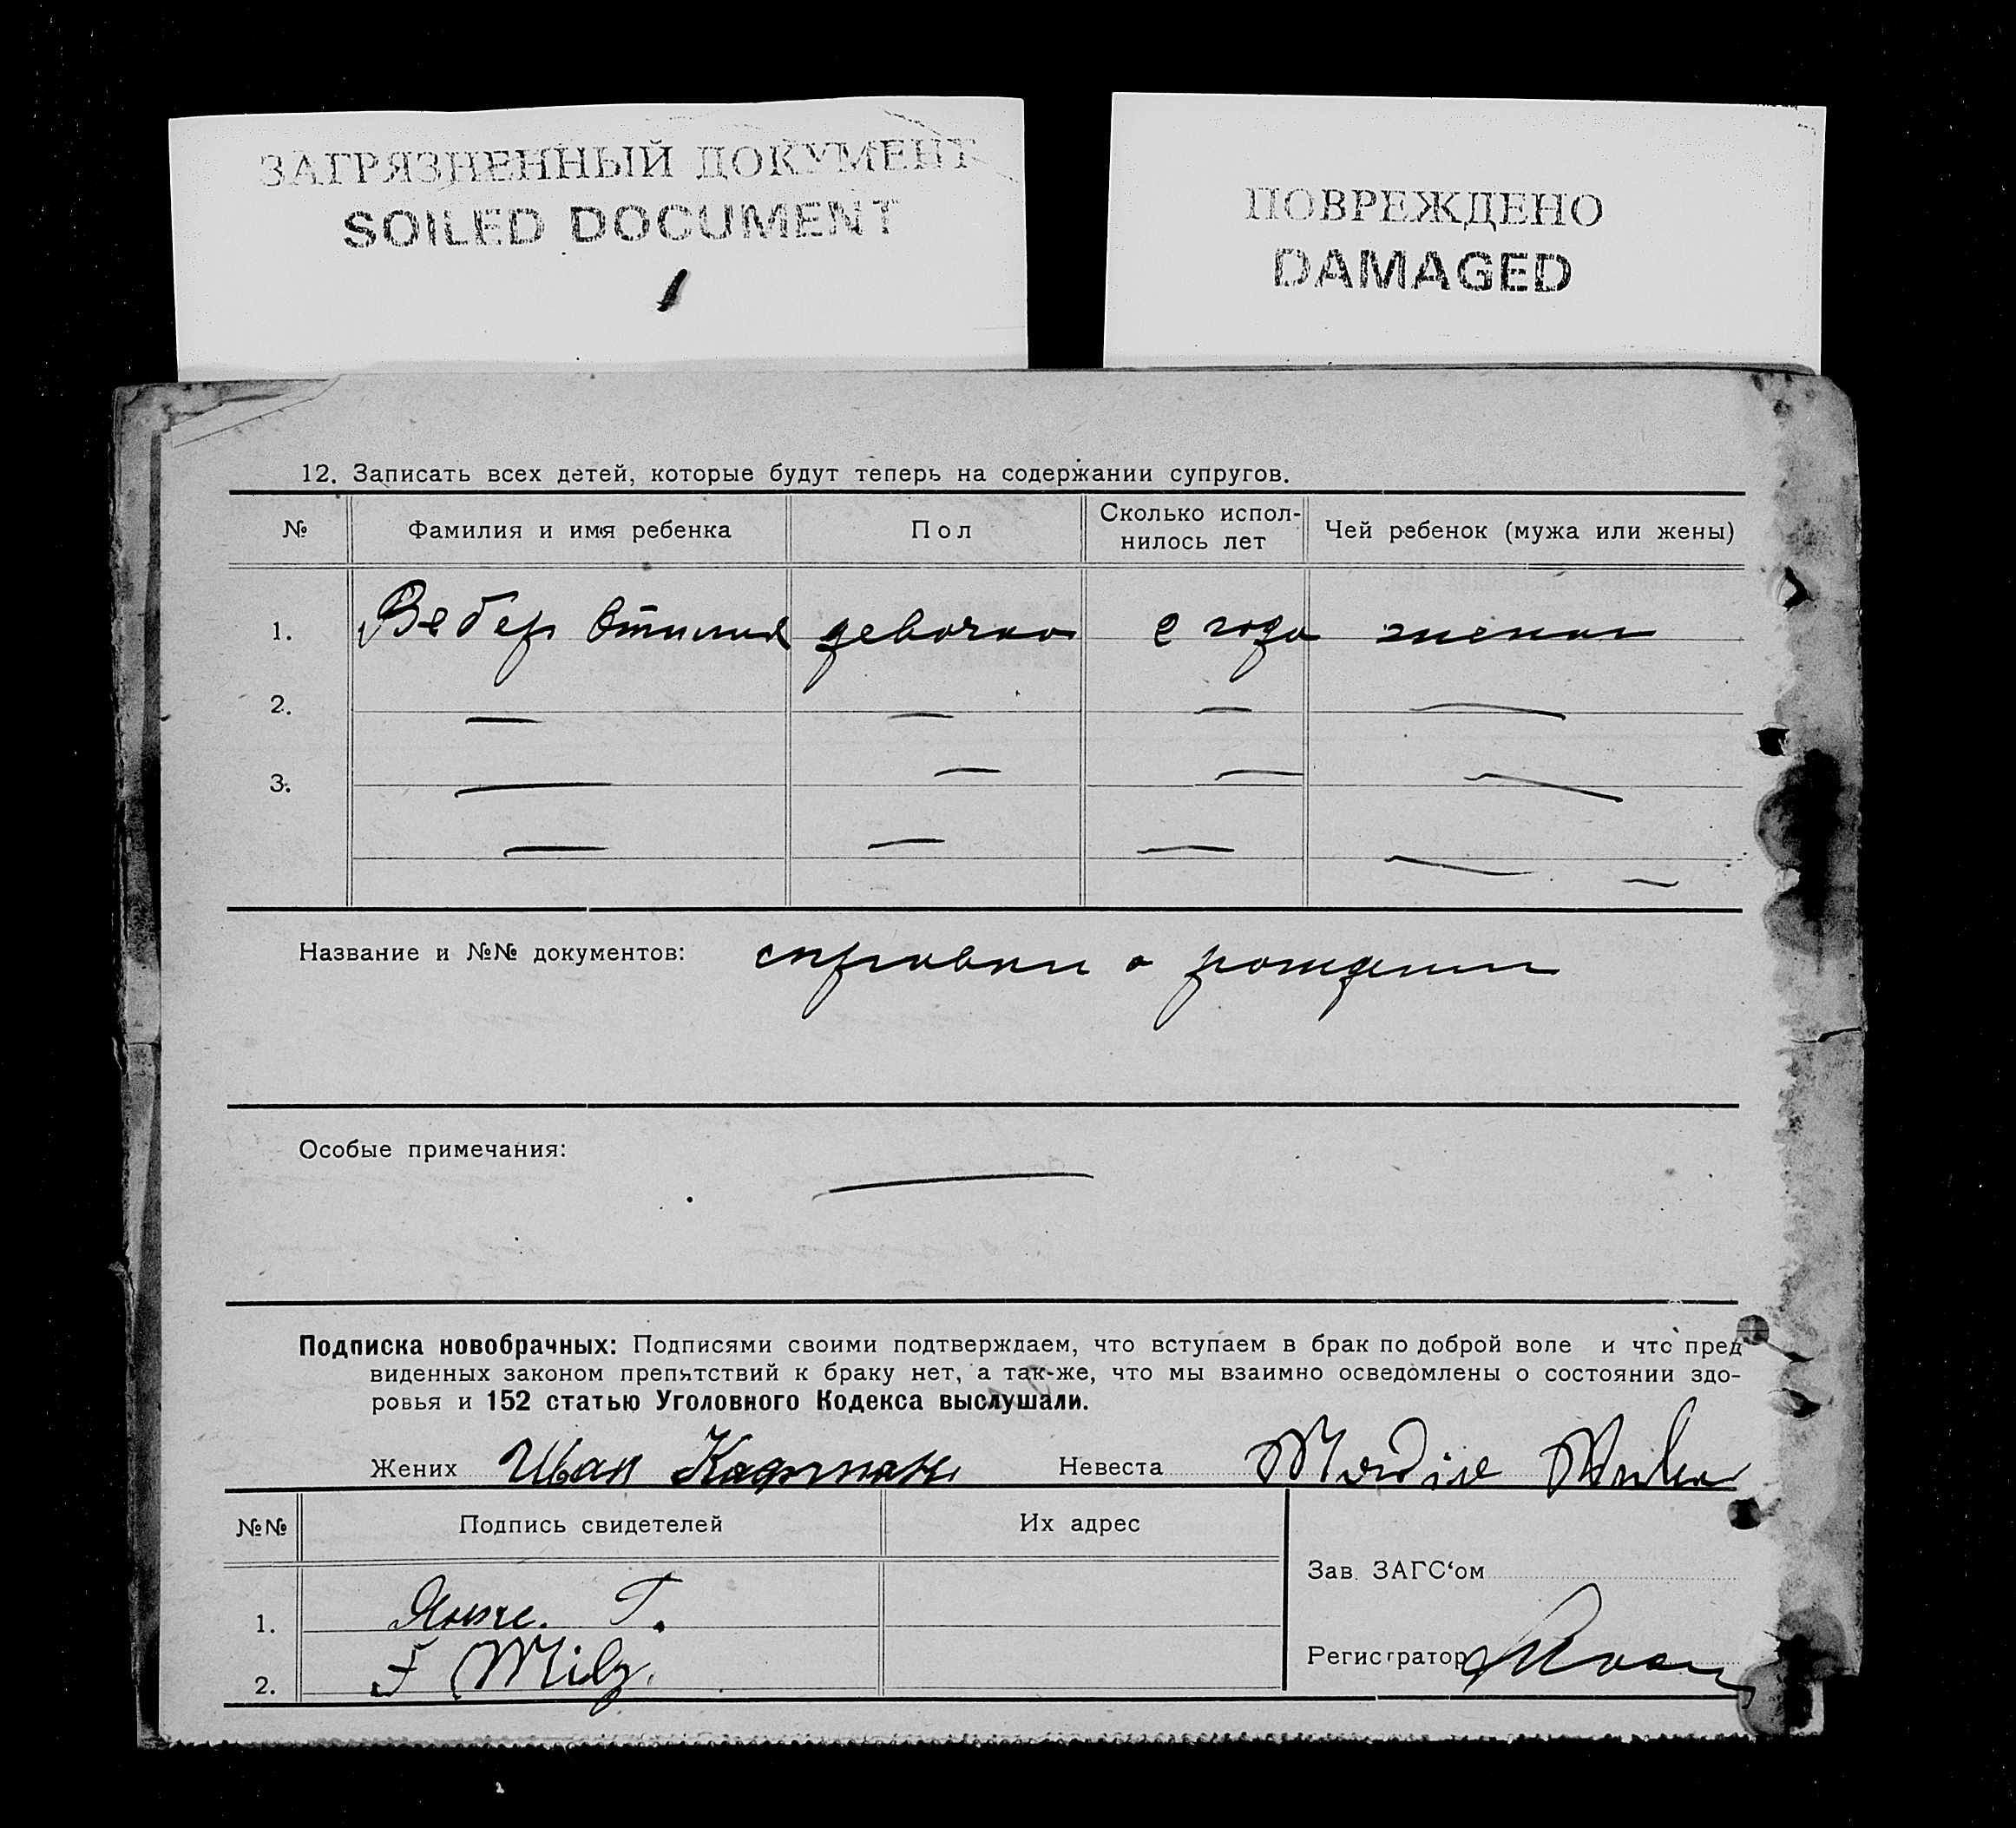 ЗАГРЯЗНЕННЫЙ ДОКУМЕНТ
SOILED DOCUMENT
1
ПОВРЕЖДЕНО
DAMAGED
12. Записать всех детей, которые будут теперь на содержании супругов.
№ Фамилия и имя ребенка Пол Сколько испол-нилось лет Чей ребенок (мужа или жены)
1. Вебер Отилия девочка 2 года жены
2. — — — —
3. — — — —
— — — — —
Название и №№ документов: справки о рождении
Особые примечания: —
Подписка новобрачных: Подписями своими подтверждаем, что вступаем в брак по доброй воле и что пред
виденных законом препятствий к браку нет, а так-же, что мы взаимно осведомлены о состоянии здо-
ровья и 152 статью Уголовного Кодекса выслушали.
Жених Иван Кафтан Невеста
№№ Подпись свидетелей Их адрес
Зав. ЗАГС'ом
1. Г.
Регистратор
2. F Milz.